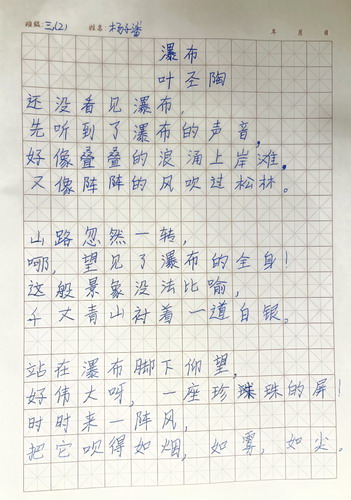 班级:三(2) 姓名: 杨子 年 月 日
瀑布
叶圣陶
还没看见瀑布,
先听到了瀑布的声音,
好像叠叠的浪涌上岸滩,
又像阵阵的风吹过松林。
山路忽然一转,
哪,望见了瀑布的全身!
这般景象没法比喻,
千丈青山衬着一道白银。
站在瀑布脚下仰望,
好伟大呀,一座珍珠的屏!
时时来一阵风,
把它吹得如烟,如雾,如尘。